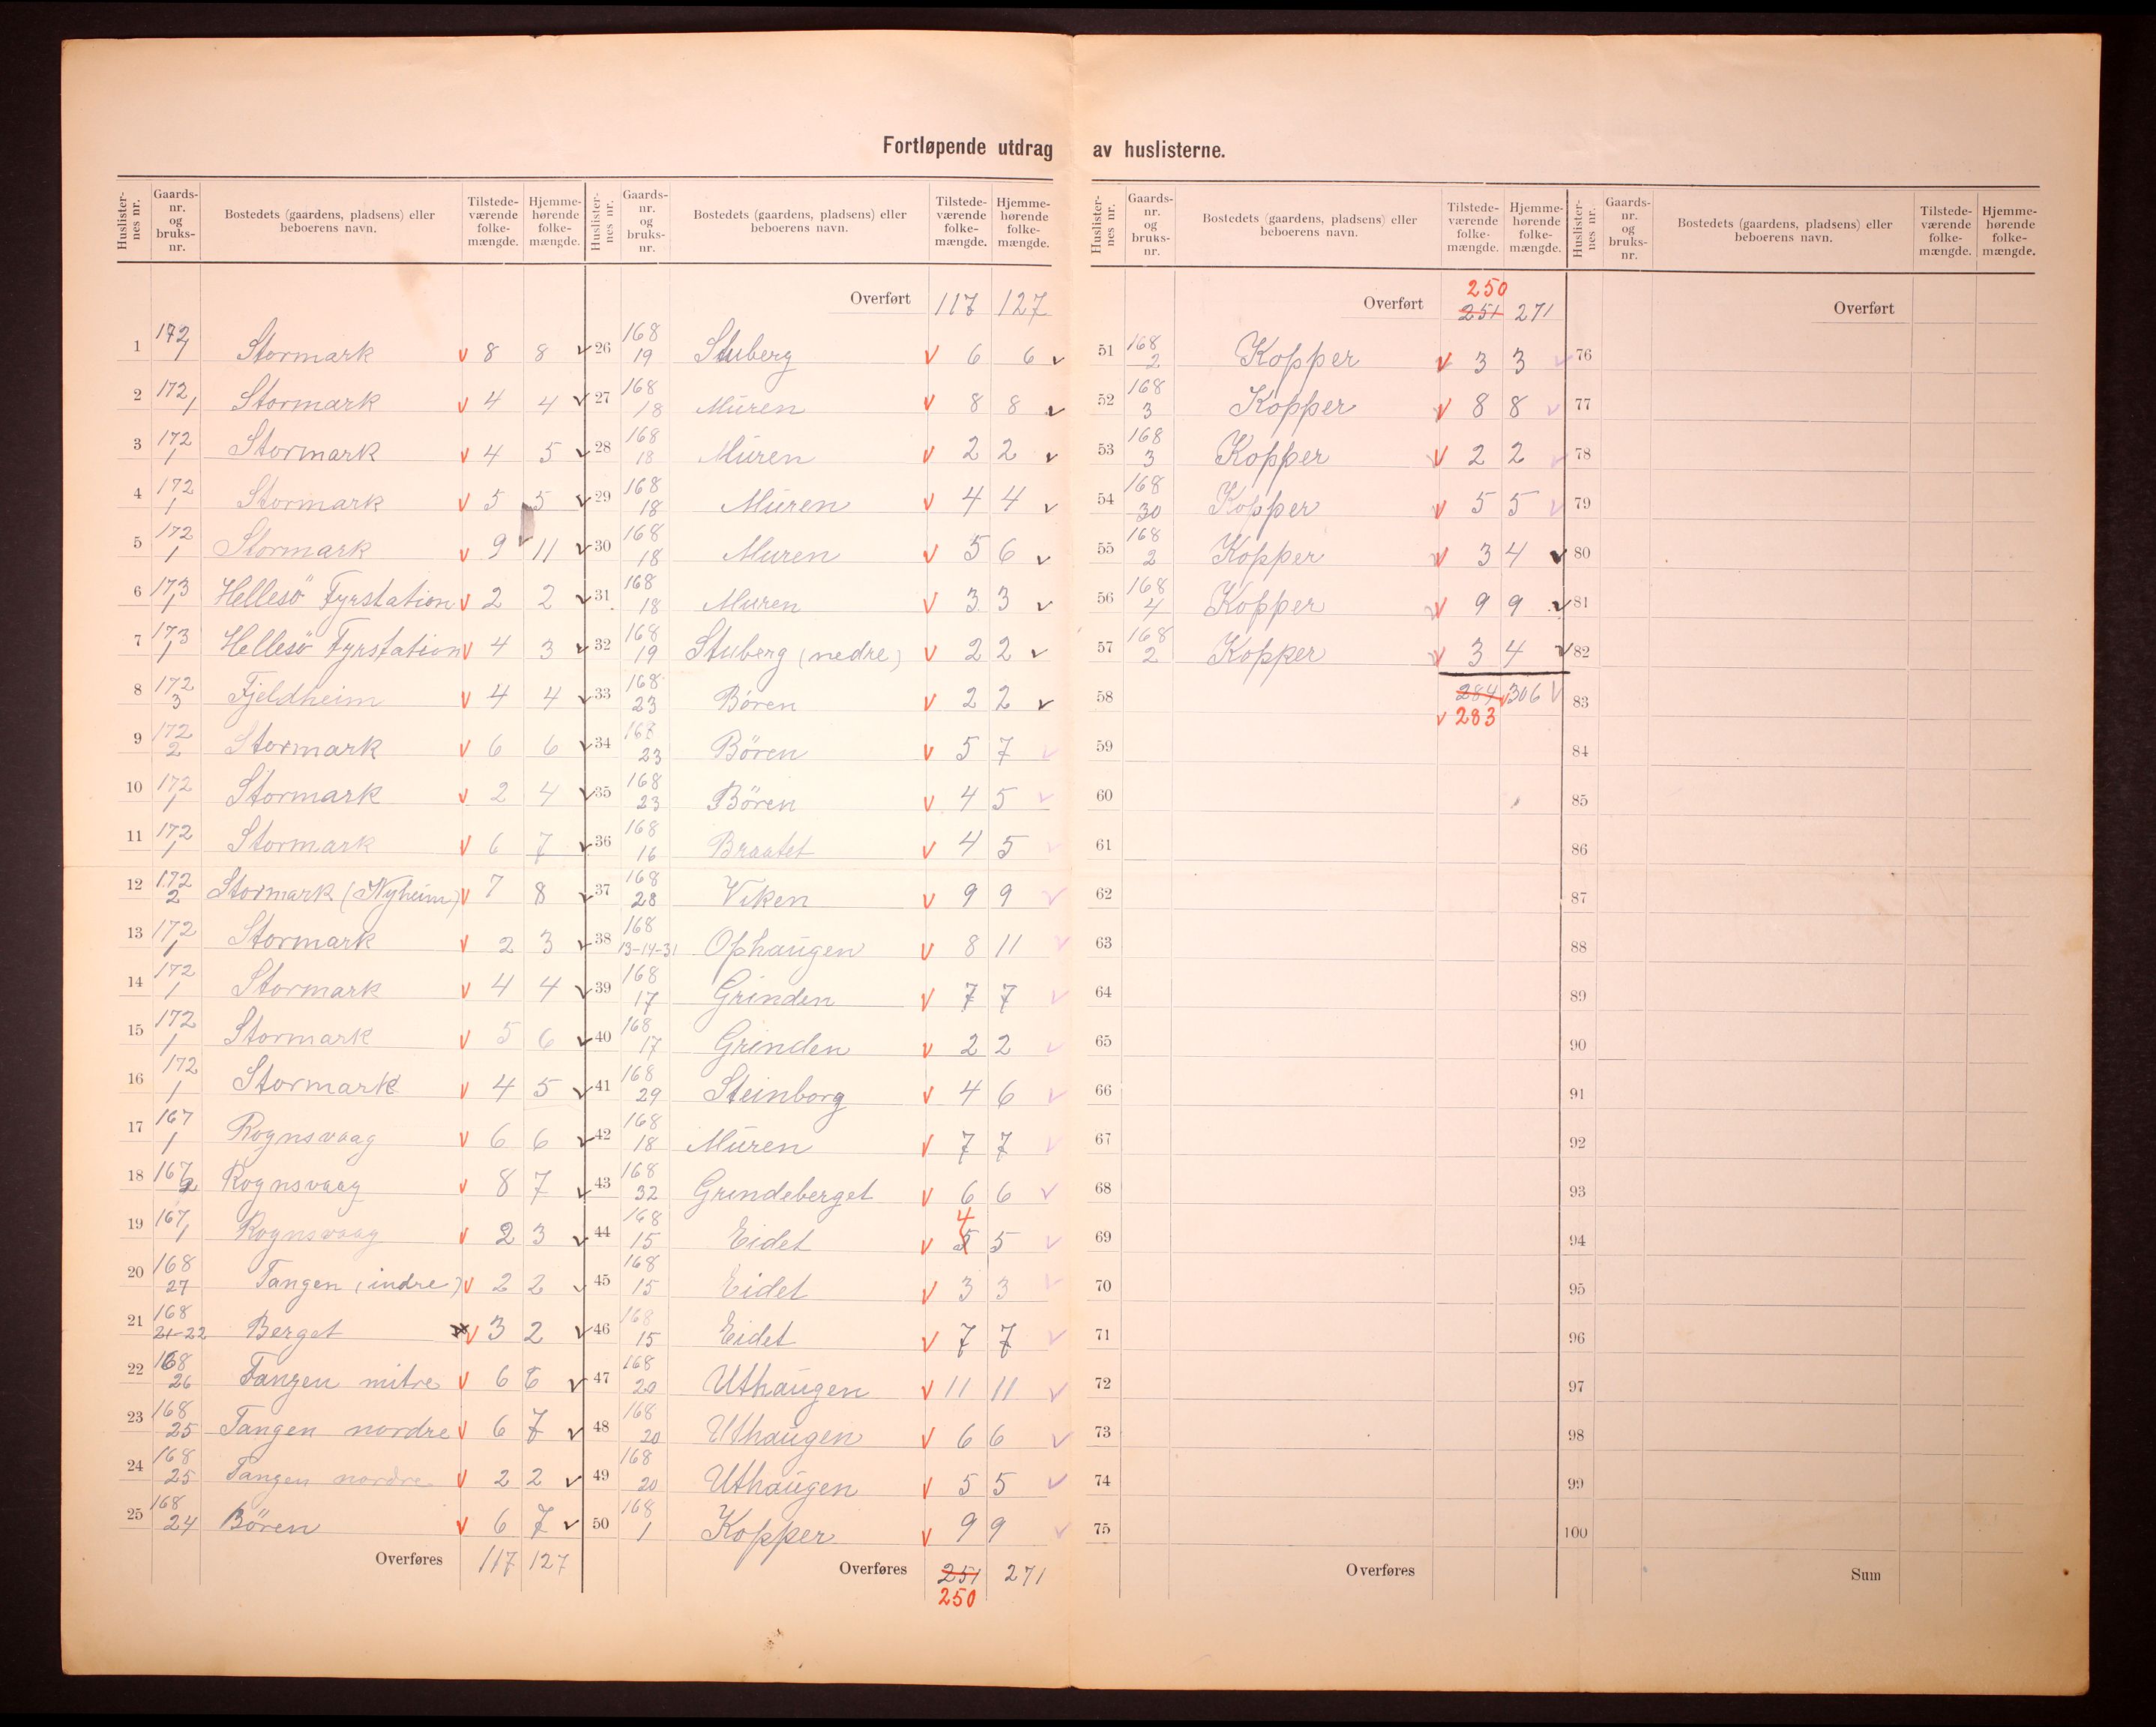 Fortløpende utdrag av huslisterne.
Huslister-nes nr. | Gaards-nr. og bruks-nr. | Bostedets (gaardens, pladsens) eller beboerens navn. | Tilstede-værende folke-mængde. | Hjemme-hørende folke-mængde.
1 172/1 Stormark 8 8
2 172/1 Stormark 4 4
3 172/1 Stormark 4 5
4 172/1 Stormark 5 5
5 172/1 Stormark 9 11
6 173/1 Hellesö Fyrstation 2 2
7 173/1 Hellesö Fyrstation 4 3
8 172/3 Fjeldheim 4 4
9 172/2 Stormark 6 6
10 172/1 Stormark 2 4
11 172/1 Stormark 6 7
12 172/2 Stormark (Nyheim) 7 8
13 172/1 Stormark 2 3
14 172/1 Stormark 4 4
15 172/1 Stormark 5 6
16 172/1 Stormark 4 5
17 167/1 Rognsvaag 6 6
18 167/2 Rognsvaag 8 7
19 167/1 Rognsvaag 2 3
20 168/27 Tangen (indre) 2 2
21 168/21-22 Berget 3 2
22 168/26 Tangen mitre 6 6
23 168/25 Tangen nordre 6 7
24 168/25 Tangen nordre 2 2
25 168/24 Bören 6 7
Overføres 117 127
Huslister-nes nr. | Gaards-nr. og bruks-nr. | Bostedets (gaardens, pladsens) eller beboerens navn. | Tilstede-værende folke-mængde. | Hjemme-hørende folke-mængde.
Overført 117 127
26 168/19 Stuberg 6 6
27 168/18 Muren 8 8
28 168/18 Muren 2 2
29 168/18 Muren 4 4
30 168/18 Muren 5 6
31 168/18 Muren 3 3
32 168/19 Stuberg (nedre) 2 2
33 168/23 Bören 2 2
34 168/23 Bören 5 7
35 168/23 Bören 4 5
36 168/16 Braatet 4 5
37 168/28 Viken 9 9
38 168/13-14-31 Ophaugen 8 11
39 168/17 Grinden 7 7
40 168/17 Grinden 2 2
41 168/29 Steinborg 4 6
42 168/18 Muren 7 7
43 168/32 Grindeberget 6 6
44 168/15 Eidet 5 4 5
45 168/15 Eidet 3 3
46 168/15 Eidet 7 7
47 168/20 Uthaugen 11 11
48 168/20 Uthaugen 6 6
49 168/20 Uthaugen 5 5
50 168/1 Kopper 9 9
Overføres 251 271
250
Huslister-nes nr. | Gaards-nr. og bruks-nr. | Bostedets (gaardens, pladsens) eller beboerens navn. | Tilstede-værende folke-mængde. | Hjemme-hørende folke-mængde.
250
Overført 251 271
51 168/2 Kopper 3 3
52 168/3 Kopper 8 8
53 168/3 Kopper 2 2
54 168/30 Kopper 5 5
55 168/2 Kopper 3 4
56 168/4 Kopper 9 9
57 168/2 Kopper 3 4
58 284 306
283
59
60
61
62
63
64
65
66
67
68
69
70
71
72
73
74
75
Overføres
Huslister-nes nr. | Gaards-nr. og bruks-nr. | Bostedets (gaardens, pladsens) eller beboerens navn. | Tilstede-værende folke-mængde. | Hjemme-hørende folke-mængde.
Overført
76
77
78
79
80
81
82
83
84
85
86
87
88
89
90
91
92
93
94
95
96
97
98
99
100
Sum